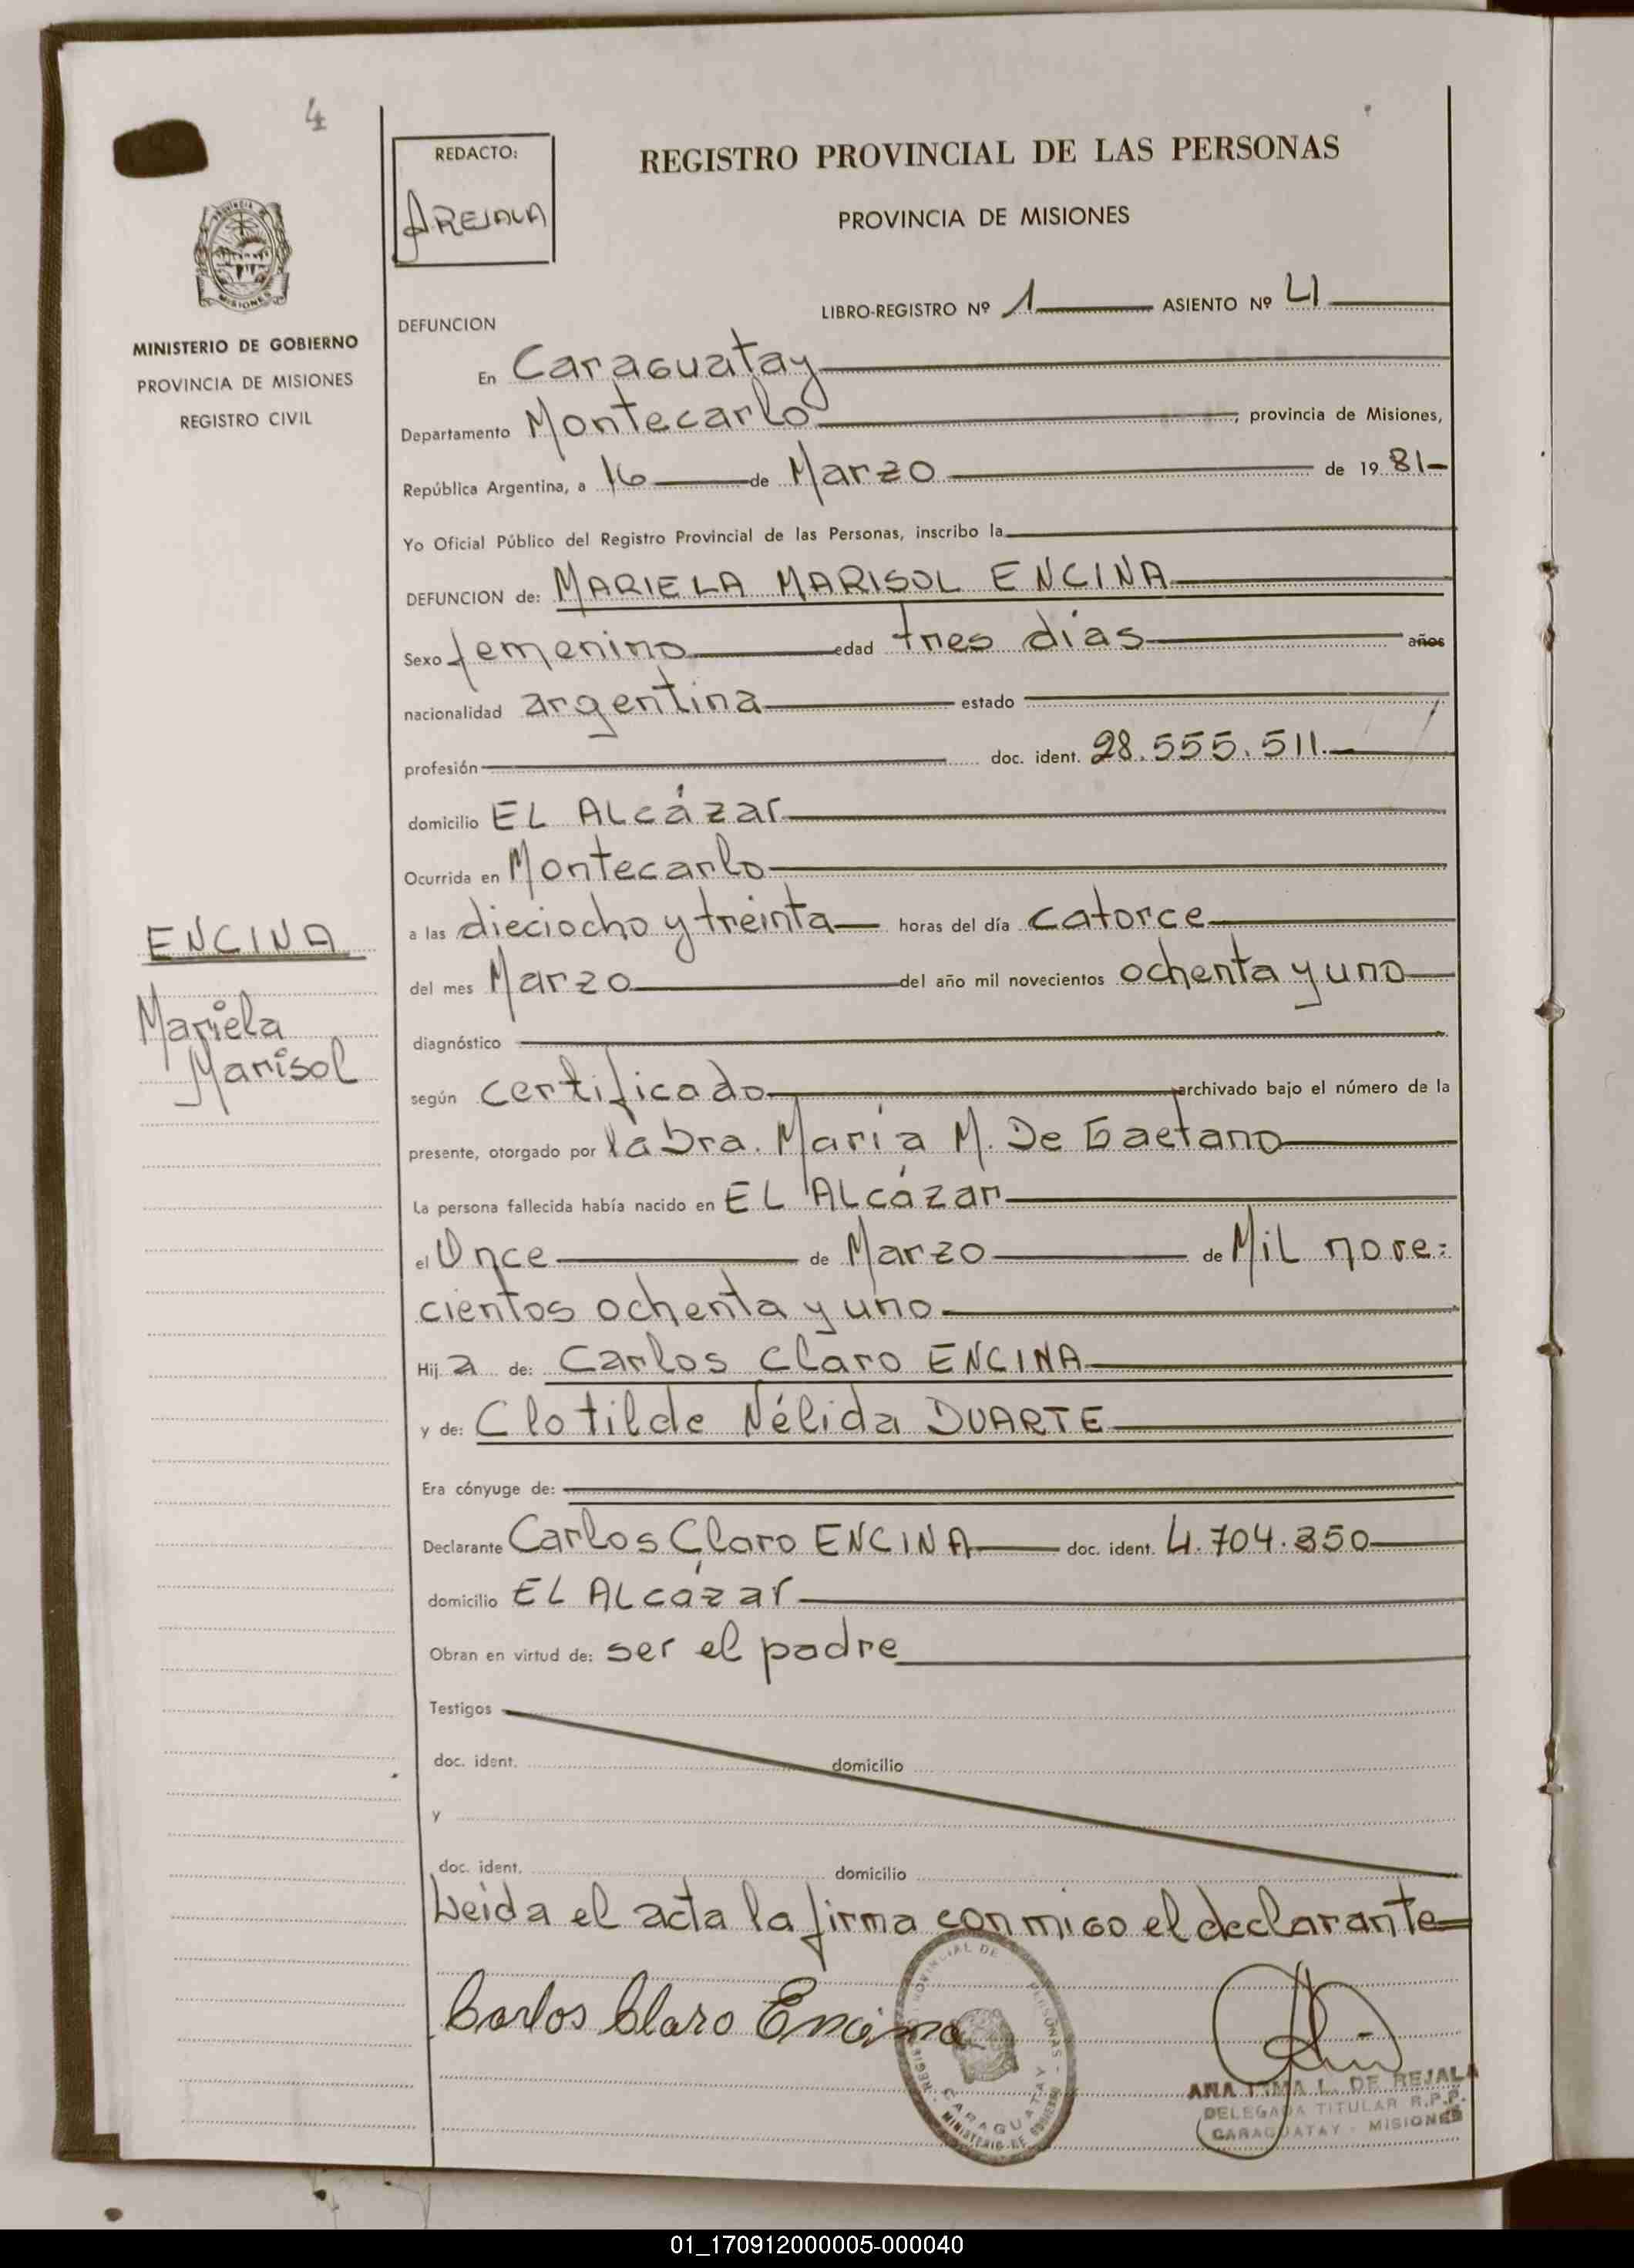 4
REDACTO:
A. REJALA
REGISTRO PROVINCIAL DE LAS PERSONAS
PROVINCIA DE MISIONES
MISIONES
MINISTERIO DE GOBIERNO
PROVINCIA DE MISIONES
REGISTRO CIVIL
LIBRO-REGISTRO Nº 1 ASIENTO Nº 4
DEFUNCION
En Caraguatay
Departamento Montecarlo, provincia de Misiones,
República Argentina, a 16 de Marzo de 1981-
Yo Oficial Público del Registro Provincial de las Personas, inscribo la
DEFUNCION de: MARIELA MARISOL ENCINA
Sexo femenino edad tres dias años
nacionalidad argentina estado
profesión doc. ident. 28.555.511.-
domicilio EL ALcázar
Ocurrida en Montecarlo
ENCINA
Mariela
Marisol
a las dieciocho y treinta horas del día catorce
del mes Marzo del año mil novecientos ochenta y uno
diagnóstico
según certificado archivado bajo el número de la
presente, otorgado por la Dra. María M. De Gaetano
La persona fallecida había nacido en EL ALcázar
el Once de Marzo de Mil nove=
cientos ochenta y uno
Hija de: Carlos Claro ENCINA
y de: Clotilde Nélida DUARTE
Era cónyuge de:
Declarante Carlos Claro ENCINA doc. ident. 4.704.350
domicilio EL ALcázar
Obran en virtud de: ser el padre
Testigos
doc. ident. domicilio
y
doc. ident. domicilio
Leida el acta la firma conmigo el declarante=
Carlos Claro Encina
CARAGUATAY
ANA IRMA L. DE REJALA
DELEGADA TITULAR R.P.P.
CARAGUATAY - MISIONES
01_170912000005-000040